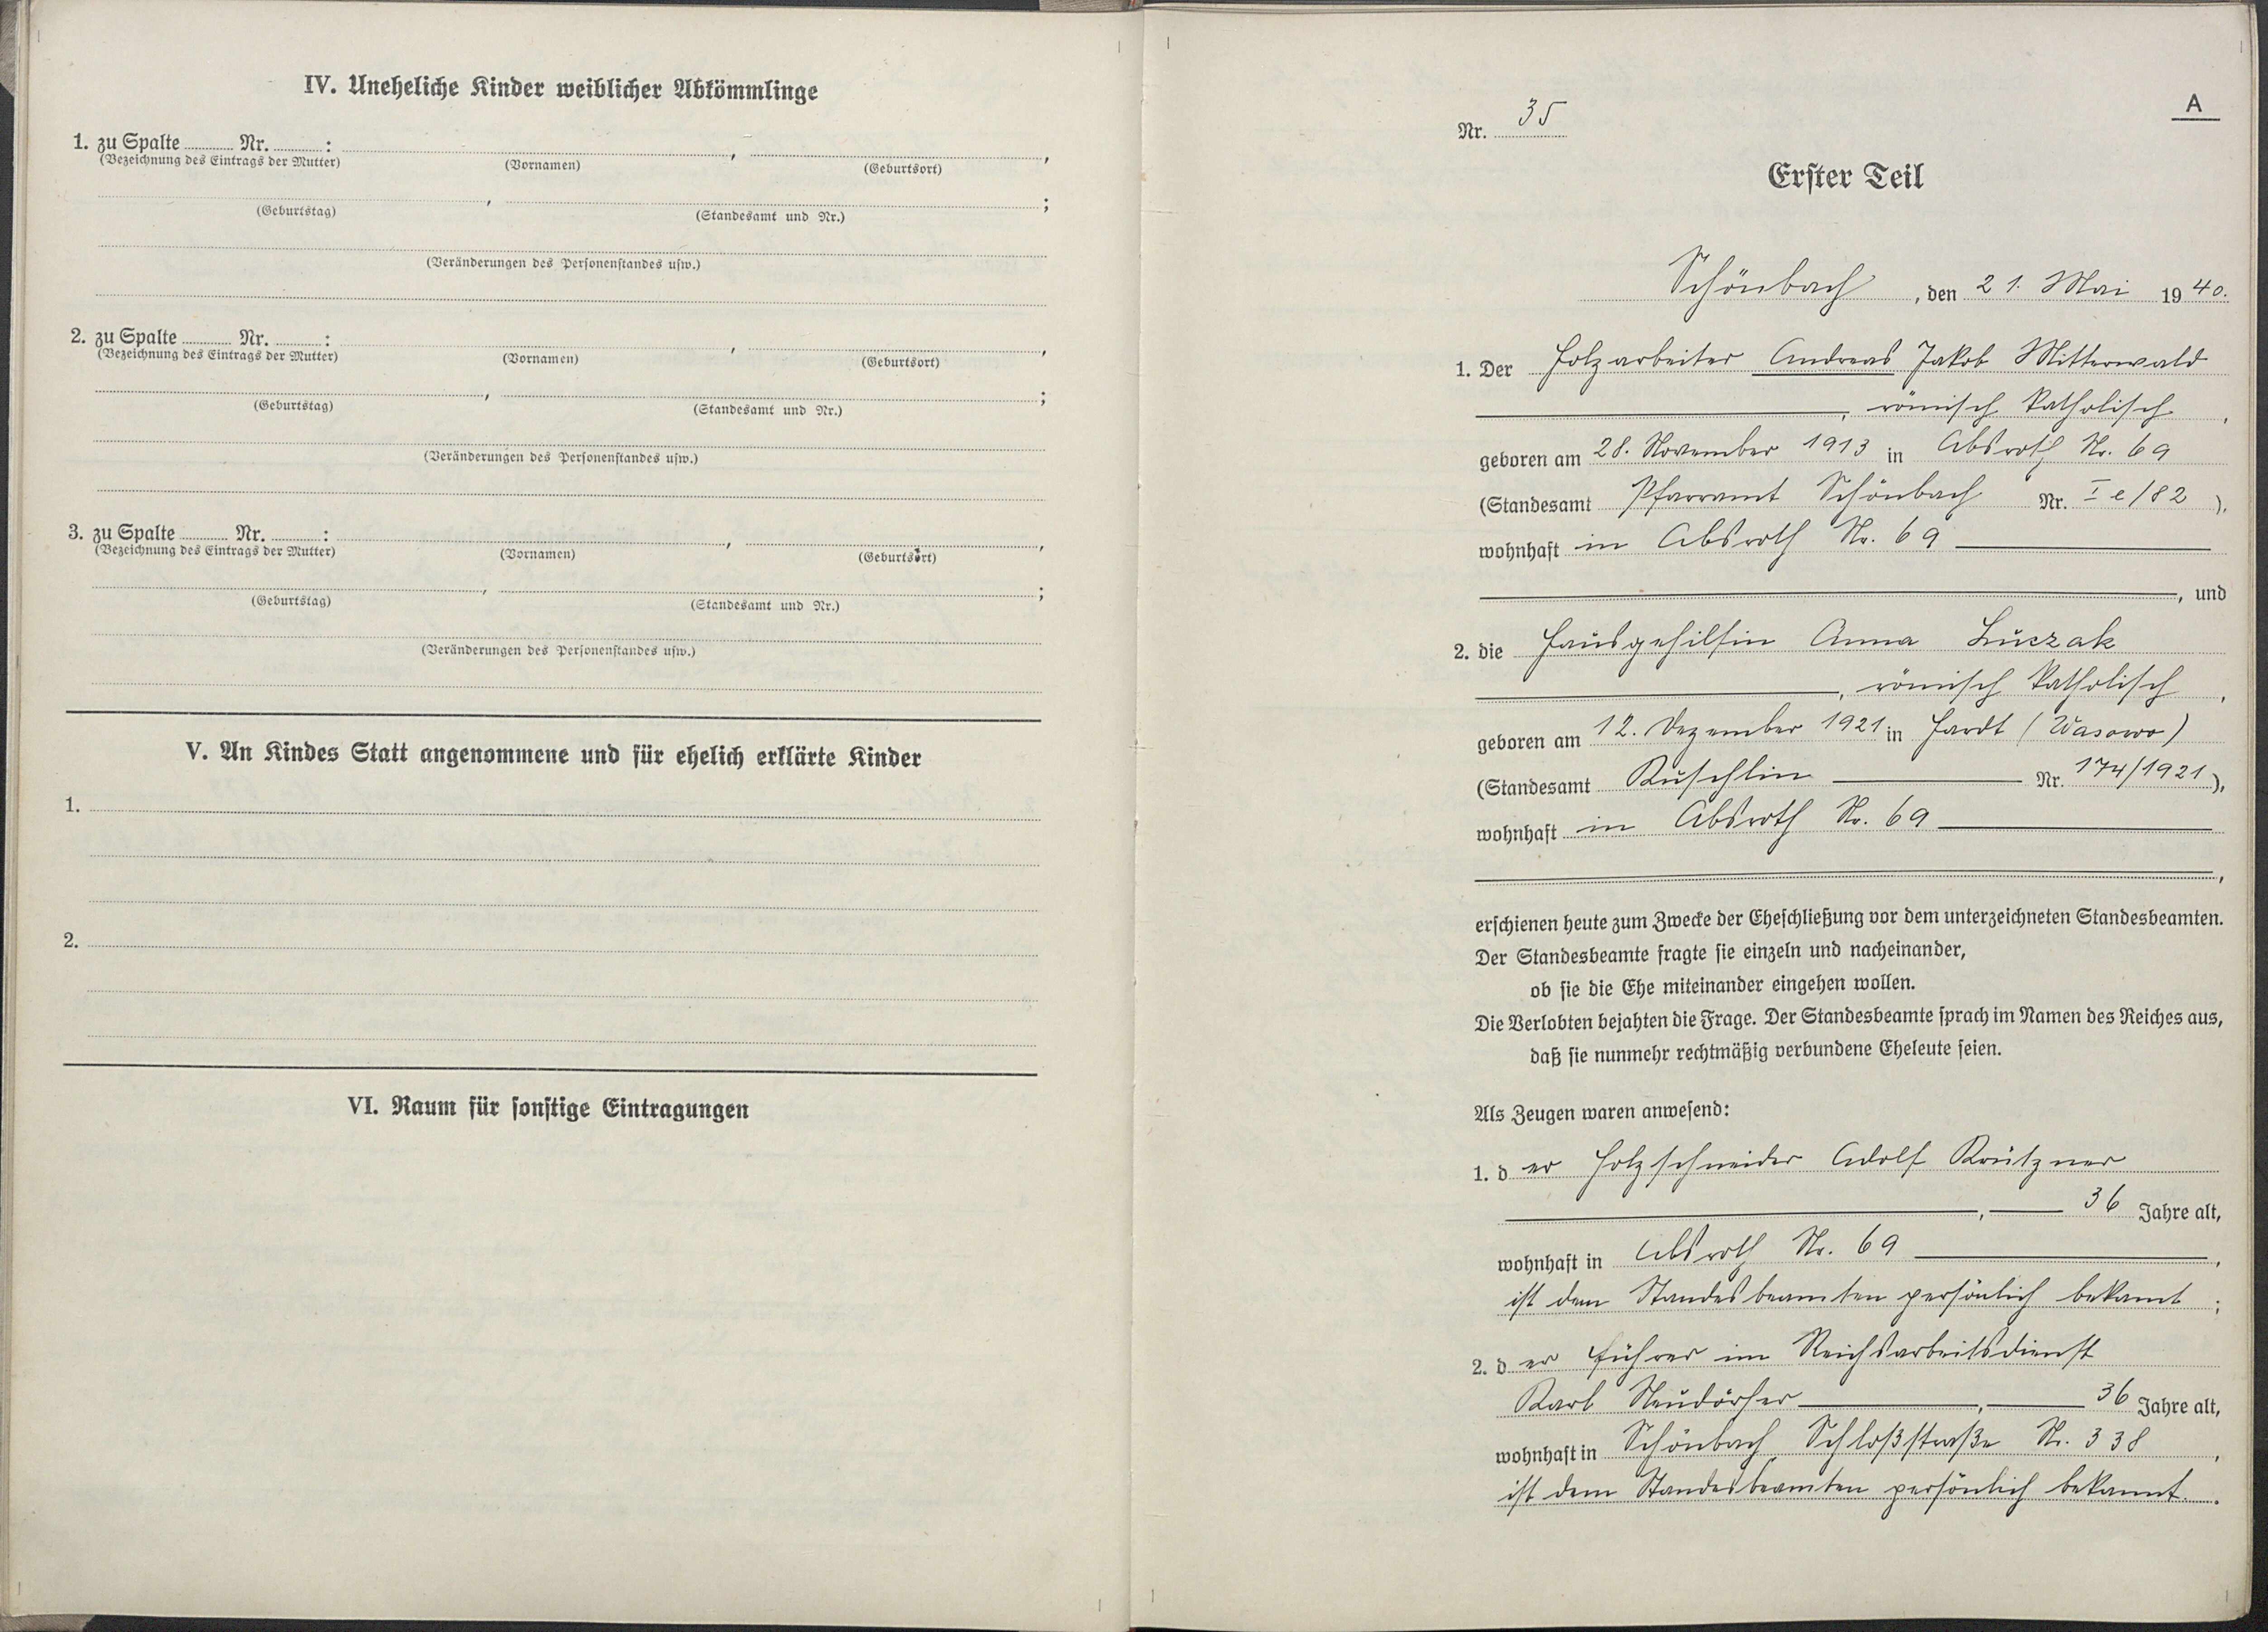 IV. Uneheliche Kinder weiblicher Abkömmlinge
1. zu Spalte ........ Nr. ........ : , ,
(Bezeichnung des Eintrags der Mutter) (Vornamen) (Geburtsort)
, ;
(Geburtstag) (Standesamt und Nr.)
(Veränderungen des Personenstandes usw.)
2. zu Spalte ........ Nr. ........ : , ,
(Bezeichnung des Eintrags der Mutter) (Vornamen) (Geburtsort)
, ;
(Geburtstag) (Standesamt und Nr.)
(Veränderungen des Personenstandes usw.)
3. zu Spalte ........ Nr. ........ : , ,
(Bezeichnung des Eintrags der Mutter) (Vornamen) (Geburtsort)
, ;
(Geburtstag) (Standesamt und Nr.)
(Veränderungen des Personenstandes usw.)
V. An Kindes Statt angenommene und für ehelich erklärte Kinder
1.
2.
VI. Raum für sonstige Eintragungen
A
Nr. 35
Erster Teil
Schönbach, den 21. Mai 1940.
1. Der Holzarbeiter Andreas Jakob Mitterwald
, römisch katholisch,
geboren am 28. November 1913 in Absroth Nr. 69
(Standesamt Pfarramt Schönbach Nr. I e/82),
wohnhaft in Absroth Nr. 69
, und
2. die Hausgehilfin Anna Luczak
, römisch katholisch,
geboren am 12. Dezember 1921 in Hardt (Wasowo)
(Standesamt Kuschlin Nr. 174/1921),
wohnhaft in Absroth Nr. 69
,
erschienen heute zum Zwecke der Eheschließung vor dem unterzeichneten Standesbeamten.
Der Standesbeamte fragte sie einzeln und nacheinander,
ob sie die Ehe miteinander eingehen wollen.
Die Verlobten bejahten die Frage. Der Standesbeamte sprach im Namen des Reiches aus,
daß sie nunmehr rechtmäßig verbundene Eheleute seien.
Als Zeugen waren anwesend:
1. der Holzschneider Adolf Kreutzner
, 36 Jahre alt,
wohnhaft in Absroth Nr. 69,
ist dem Standesbeamten persönlich bekannt;
2. der Führer im Reichsarbeitsdienst
Karl Neudörfer, 36 Jahre alt,
wohnhaft in Schönbach, Schloßstraße Nr. 338,
ist dem Standesbeamten persönlich bekannt.